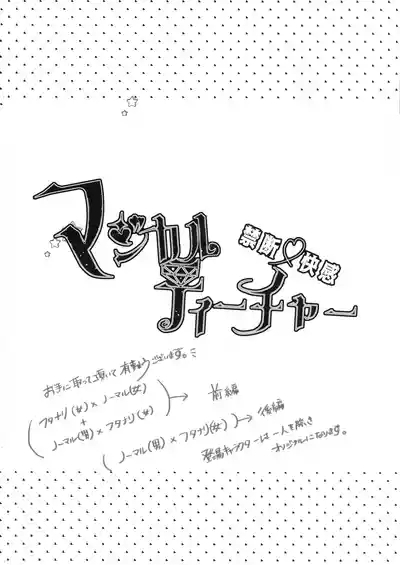 マジカル
ティーチャー
禁断 快感
お手に取って頂いて有難うございます。
フタナリ(女)×ノーマル(女)
+
ノーマル(男)×フタナリ(女)
→ 前編
(ノーマル(男)×フタナリ(女)) → 後編
登場キャラクターは一人を除き
オリジナルになります。